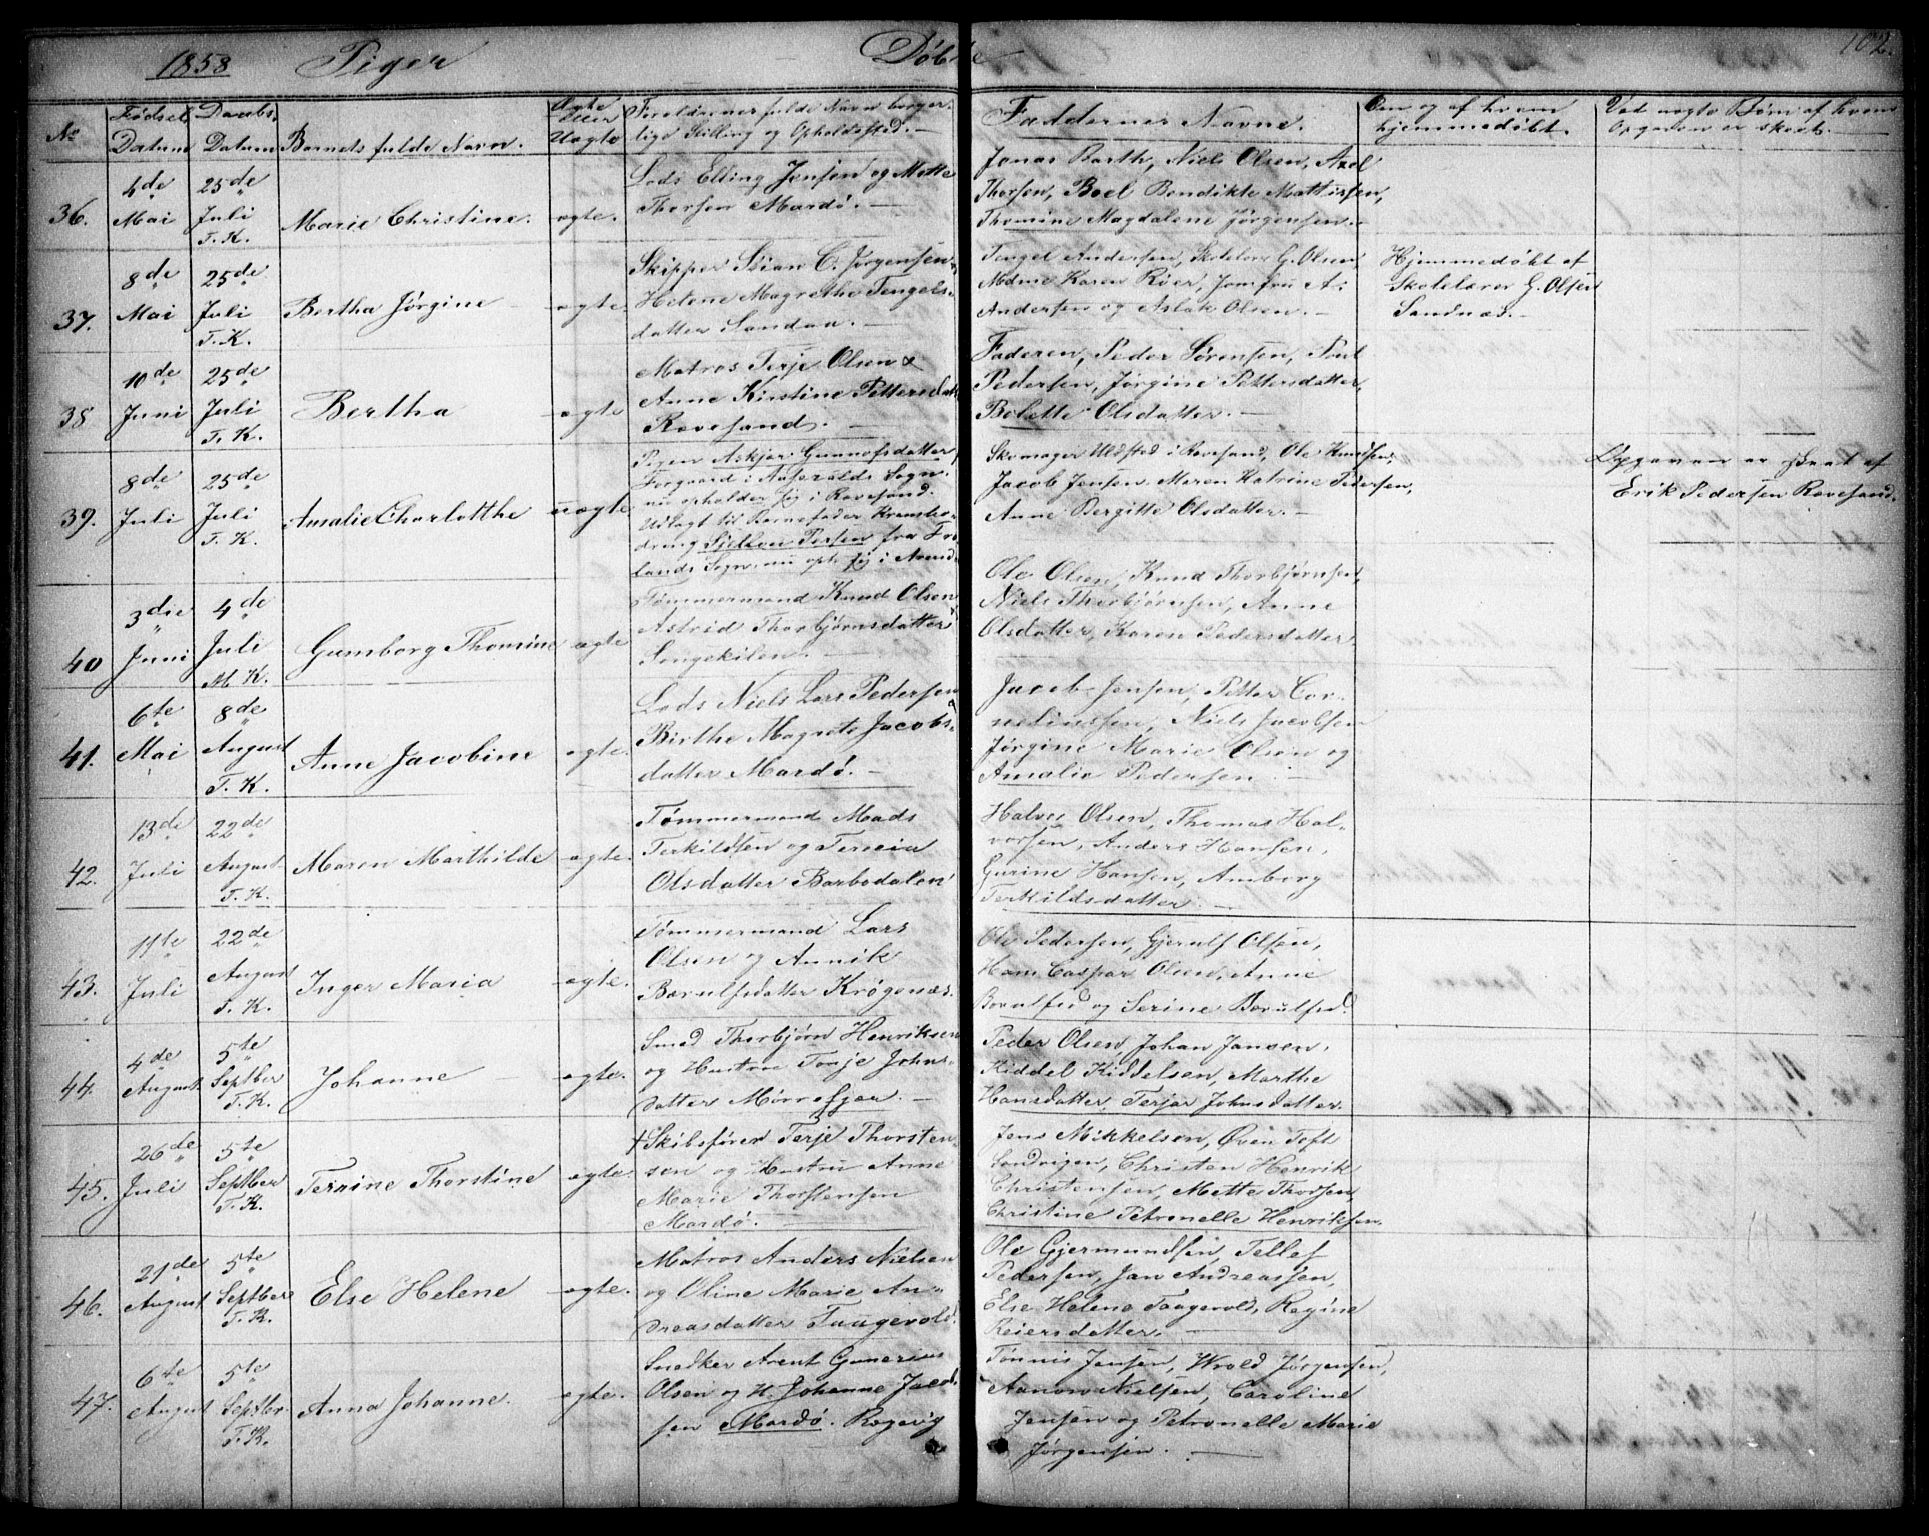 1858 Piger Døbte 102.
No
Fødsels Datum
Daabs Datum
Barnets fulde Navn.
Ægte eller Uægte
Forældrenes fulde Navn borgerlige Stilling og Opholdssted.
Faddernes Navne.
Om og af hvem hjemmedøbt.
Ved uægte Børn af hvem Opgaven er skeet.
36.
4de Mai
25de Juli T. K.
Marie Christine.
ægte.
Lods Elling Jensen og Mette
Thorsen Mardø.
Jonas Barth, Niels Olsen, Axel
Thorsen, Boel Bendikte Mattissen,
Thomine Magdalene Jørgensen.
37.
8de Mai
25de Juli T. K.
Bertha Jørgine
ægte.
Skipper Stian C. Jørgensen
Helene Magrethe Tengels-
datter Sandaa.
Tengel Andersen, Skolelærer G. Olsen,
Mdme Karen Riber, Jomfru A:
Andersen og Aslak Olsen.
Hjemmedøbt af
Skolelærer G. Olsen
Sandnæs.
38
10de Juni
25de Juli T. K.
Bertha
ægte
Matros Terje Olsen &
Anne Kirstine Pettersdat
Revesand.
Faderen, Peder Sørensen, Poul
Pedersen, Jørgine Pettersdatter,
Bolette Olsdatter.
39.
8de Juli
25de Juli T. K.
Amalie Charlotthe
uægte
Pigen Askjer Gunnofsdatter,
nu opholder sig i Revesand.
Udlagt til Barnefader
Skomager Uldsted i Revesand, Ole Knudsen,
Jacob Jensen, Maren Katrine Pedersen,
Anne Bergitte Olsdatter.
Opgaven er skeet af
Erik Pedersen Revesand.
40
3die Juni
4de Juli M. K.
Gumborg Thomine
ægte
Tømmermand Knud Olsen
Astrid Thorbjørnsdatter
Songekilen.
Ole Olsen, Knud Thorbjørnsen,
Niels Thorbjørnsen, Anne
Olsdatter, Karen Pedersdatter
41.
6te Mai
8de August T. K.
Anne Jacobine
ægte.
Lods Niels Lars Pedersen
Birthe Magrete Jacobs-
datter Mardø.
Jacob Jensen, Petter Cor-
neliussen, Niels Jacobsen
Jørgine Marie Olsen og
Amalie Pedersen.
42.
13de Juli
22de August T. K.
Maren Marthilde
ægte.
Tømmermand Mads
Terkildsen og Teresia
Olsdatter Barbodalen
Halvor Olsen, Thomas Hal-
vorsen, Anders Hansen,
Gurine Hansen, Amborg
Terkildsdatter.
43.
11te Juli
22de August T. K.
Inger Maria
ægte.
Tømmermand Lars
Olsen og Annik
Berulfsdatter Krøgenæs.
Ole Pedersen, Gjerulf Olsen,
Hans Caspar Olsen, Anne
Berulfsd og Serine Berulfsd.
44.
4de August
5te Septber T. K.
Johanne
ægte.
Smed Thorbjørn Henriksen
og Hustru Tonje Johns-
datter Mørrefjær.
Peder Olsen, Johan Jansen,
Kiddel Kiddelsen, Marthe
Hansdatter, Terjer Johnsdatter.
45.
26de Juli
5te Septber T. K.
Terrine Thorstine
ægte.
Skibsfører Terje Thorsten-
sen og Hustru Anne
Marie Thorstensen
Mardø.
Jens Mikkelsen, Øven Toft
Sandvigen, Christen Henrik
Christensen, Mette Thorsen,
Christine Petronelle Henriksen.
46.
21de August
5te Septbere T. K.
Else Helene
ægte.
Matros Anders Nielsen
og Oline Marie An-
dreasdatter Taugevold.
Ole Gjermundsen, Tellef
Pedersen, Jan Andreassen,
Else Helene Taagevold, Regine
Reiersdatter.
47.
6te August
5te Septbr. T. K.
Anna Johanne.
ægte.
Snedker Arent Gunerius
Olsen og H. Johanne Jacob-
sen Mardø. Rægevig
Tønnis Jensen, Wrold Jørgensen,
Aanon Nielsen, Caroline
Jensen og Petronelle Marie
Jørgensen.